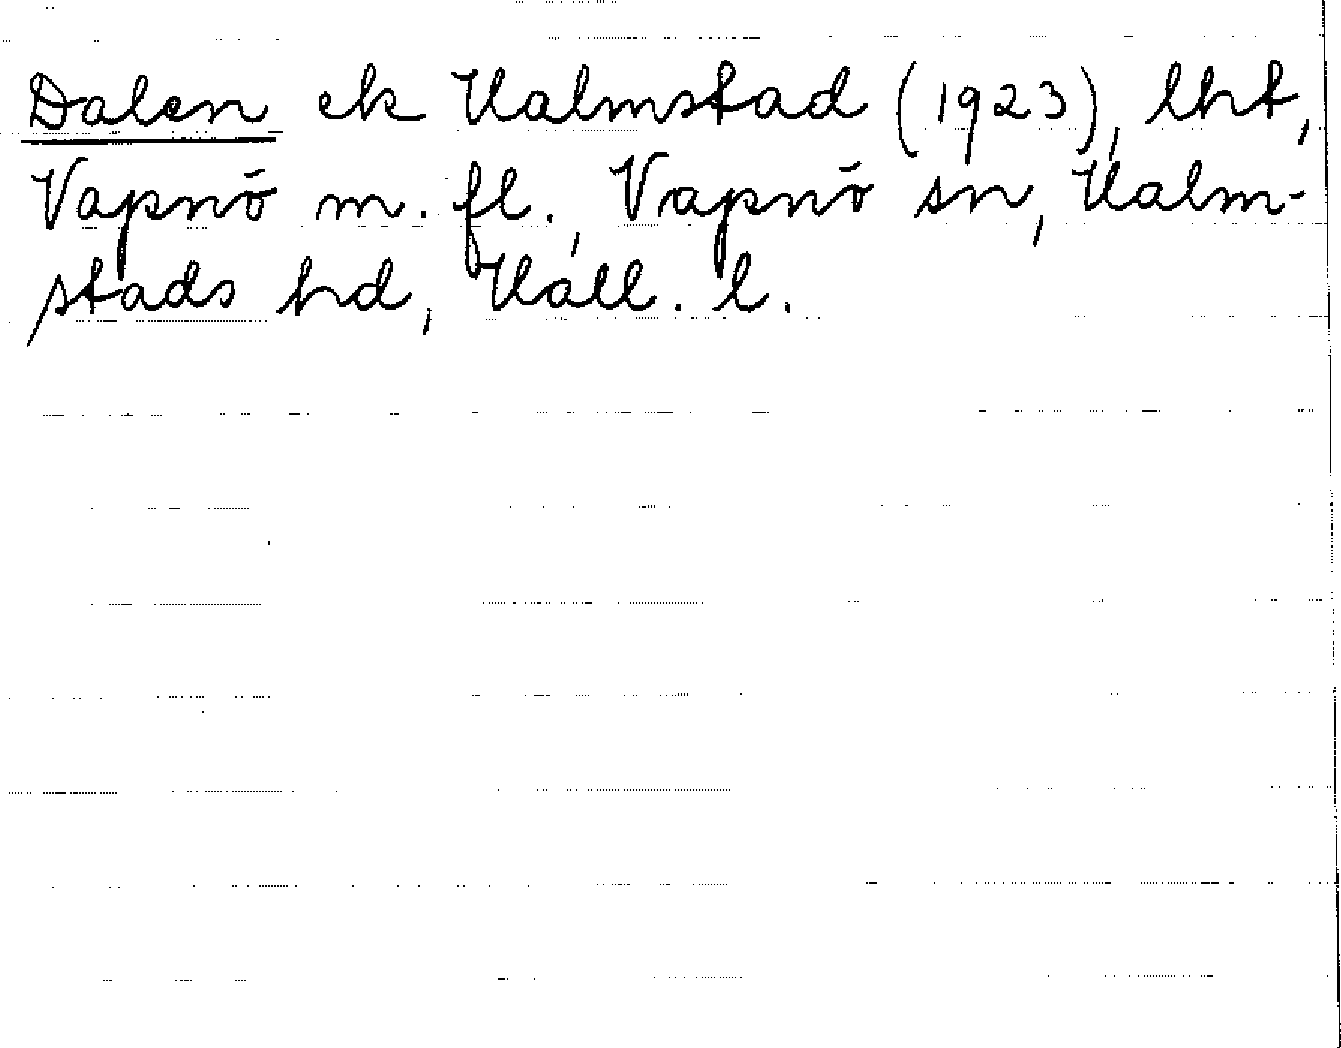 Dalen ek Halmstad (1923), lht,
Vapnö m. fl., Vapnö sn, Halm-
stads hd, Hall. l.